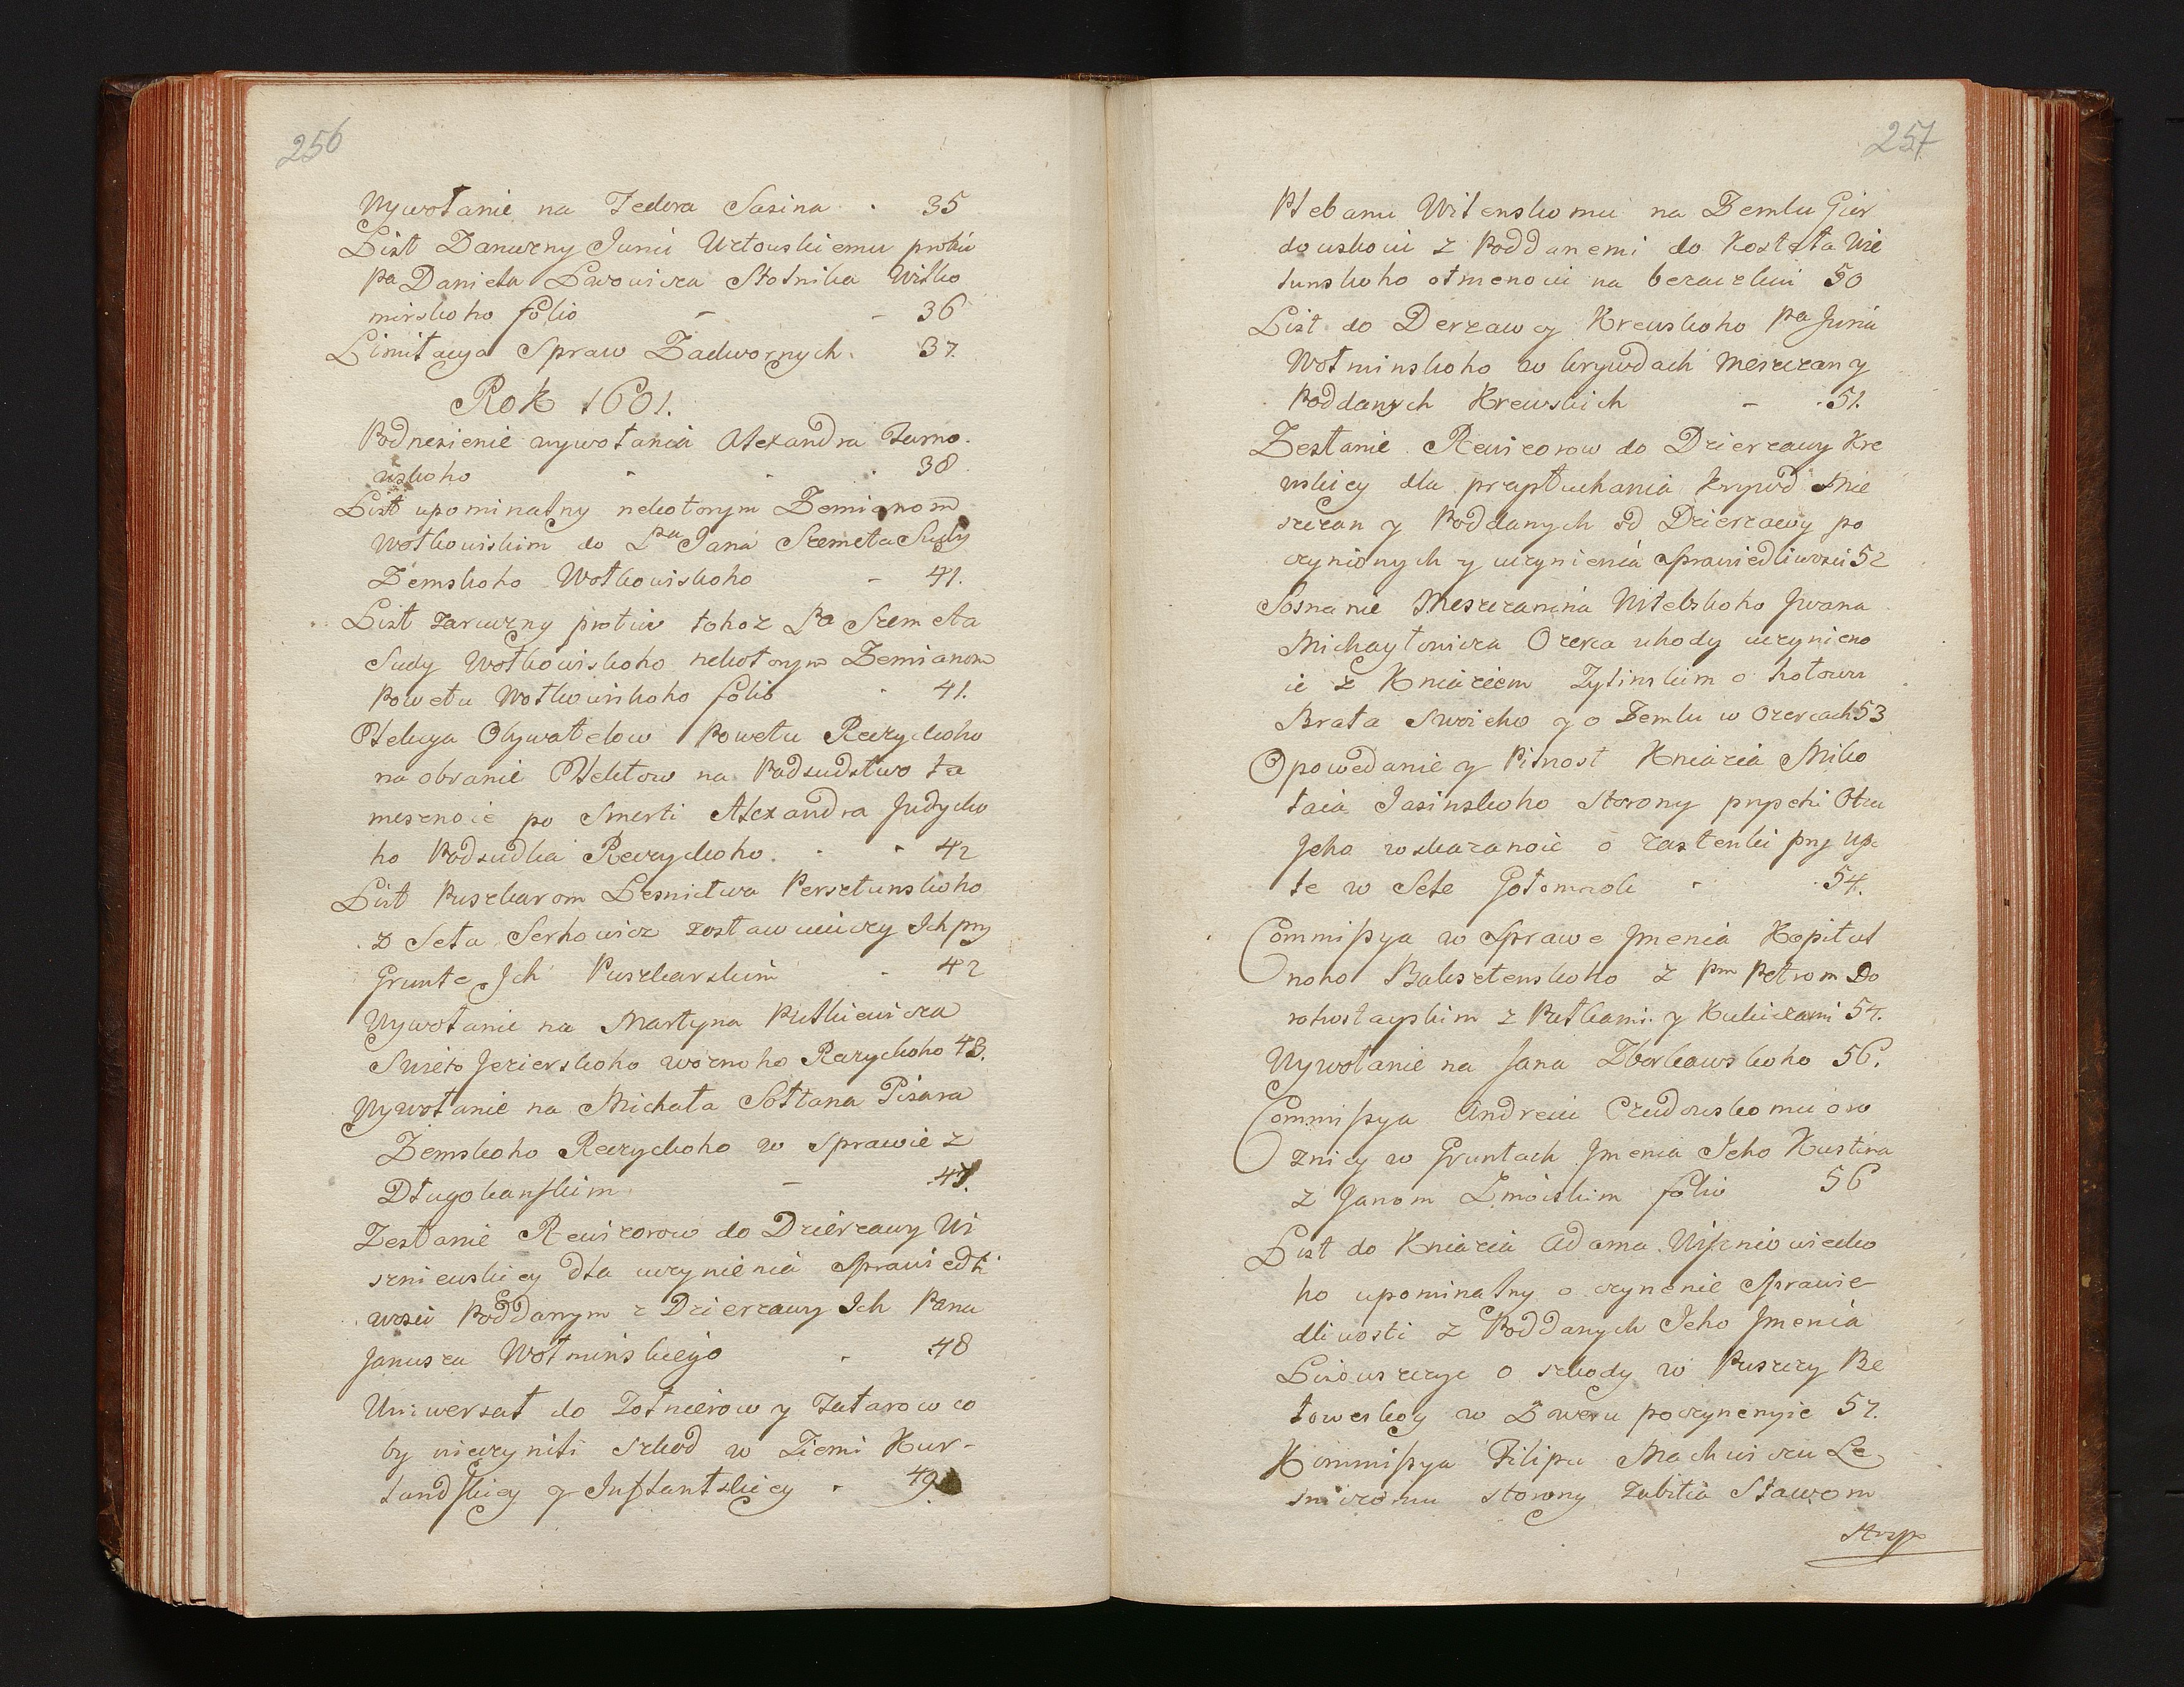 256
Wywołanie na Fedora Sasina 35
List Danurny Juriu Urtowskiemu protiw
Pa Daniela Lwowicza Stolnika Wilko
mirskoho folio - - 36
Limitacya Spraw Zadwornych. 37.
Rok 1601.
Podnesienie wywołania Alexandra Tarno.
wskoho 38.
List upominalny nekotorym Zemianom
Wołkowiskim do Pa Jana Szemeta Sudy
Zemskoho Wołkowiskoho - 41.
List zaruczny protiw tohoz Pa Szemeta
Sudy Wołkowiskoho nekotorym Zemianom
Powetu Wołkowiskoho folio 41.
Elekcya Obywatelow Powetu Reczyckoho
na obranie Elektow na Podsudstwo ta
mesznoie po Smerti Alexandra Judycko
ho Podsudka Reczyckoho. 42
List Puszkarom Lesnictwa Persztunskoho
z Seła Serhowicz zostawuiuczy Ich pry
Grunte Ich Puszkarskim 42
Wywołanie na Martyna Putkiewicza
Swieto Jezierskoho woznoho Reczyckoho 43.
Wywołanie na Michała Sołtana Pisara
Zemskoho Reczyckoho w Sprawie z
Długokanskim - 47.
Zesłanie Rewizorow do Dzierzawy Wi
szniewskiey dla uczynienia Sprawiedli
wosci Poddanym z Dzierzawy Ich Panu
Janusza Wołminskiego 48
Uniwersał do Żołnierow y Tatarow co
by nieczynili szkod w Ziemi Kur-
landskiey y Inflantskiey 49.
257
Plebanu Wilenskomu na Zemlu Gier
dowskoiu z Poddanemi do Kosteła Wie
lunskoho otmenoiu na 50
List do Derzawcy Krewskoho Pa Juria
Wołminskoho w krywdach Meszczan y
Poddanych Krewskich - 51.
Zesłanie Rewizorow do Dzierzawy Kre
wskiey dla przysłuchania krzywd Mie
szczan y Poddanych od Dzierzawy po
czynionych y uczynienia Sprawiedliwosci 52
Sosnanie Meszczanina Witebskoho Jwana
Michayłowicza Ozerca uhody uczynieno
ie z Kniaziem Zylinskim o hołowu
Brata Swoieho y o Zemlu w Ozercach 53
Opowedanie y Pilnost Kniazia Miko
łaia Jasinskoho storony prypeki Otcu
Jeho wskazanoie o zastenki pry Up.
te w Sele Gołomnoli 54.
Commissya w Sprawe Jmenia Kapituł
noho Baksztenskoho z Pm Petrom Do
rohostayskim z Putkami y Kubickami 54.
Wywołanie na Jana Zborkawskoho 56.
Commissya Andreiu Czudowskomu o ro
znicy w Gruntach Jmenia Jeho Kustina
z Janom Zmoiskim folio 56
List do Kniazia Adama Wiszniowiecko
ho upominalny o czynenie Sprawie
dliwosti z Poddanych Jeho Jmenia
o szkody w Puszczy Be
łoweskoy w Zweru poczynenyie 57.
Kommissya Filipu Machwiczu Le
sniczomu storony Zabitia Sławom